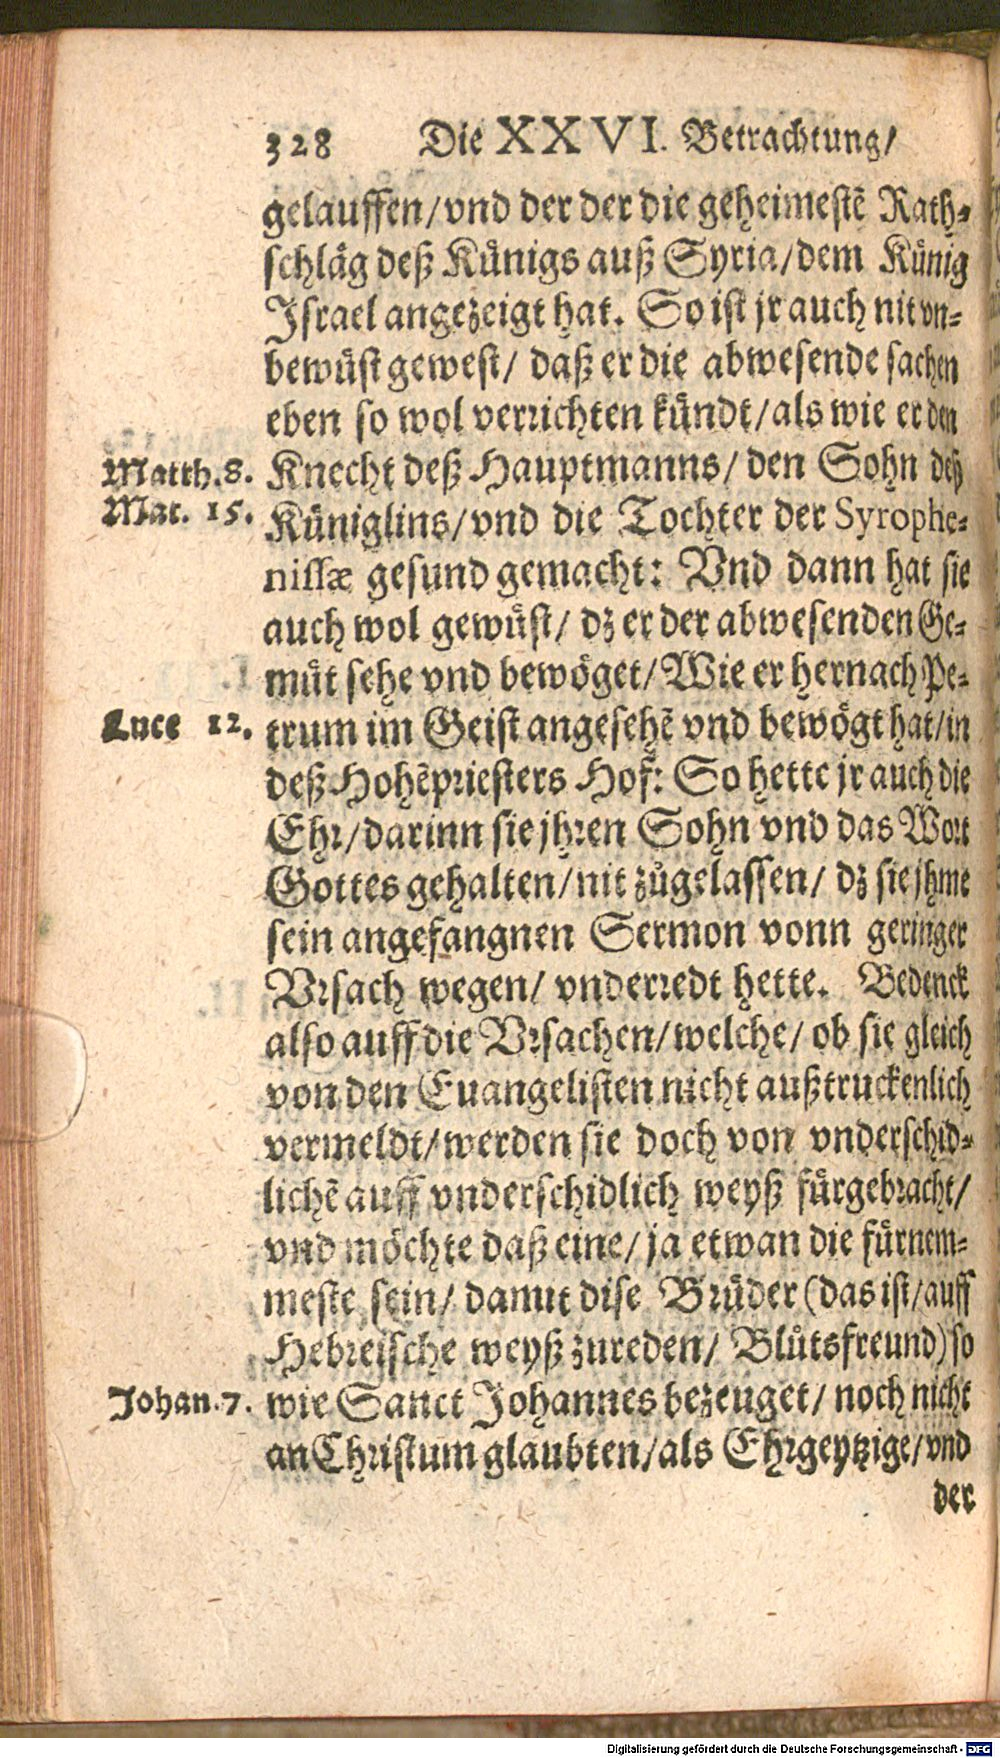 328 Die XXVI. Betrachtung/
gelauffen/vnd der der die geheimestē Rath-
schläg deß Künigs auß Syria/dem Künig
Israel angezeigt hat. So ist jr auch nit vn-
bewüst gewest/ daß er die abwesende sachen
eben so wol verrichten kündt/als wie er den
Matth.8. Knecht deß Hauptmanns/ den Sohn deß
Mat. 15. Küniglins/vnd die Tochter der Syrophe-
nissæ gesund gemacht: Vnd dann hat sie
auch wol gewüst/ dz er der abwesenden Ge-
müt sehe vnd bewöget/Wie er hernach Pe-
Luce 12. trum im Geist angesehē vnd bewögt hat/in
deß Hohēpriesters Hof: So hette jr auch die
Ehr/darinn sie jhren Sohn vnd das Wort
Gottes gehalten/nit zůgelassen/ dz sie jhme
sein angefangnen Sermon vonn geringer
Vrsach wegen/ vnderredt hette. Bedenck
also auff die Vrsachen/welche/ ob sie gleich
von den Euangelisten nicht außtruckenlich
vermeldt/werden sie doch von vnderschid-
lichē auff vnderschidlich weyß fürgebracht/
vnd möchte daß eine/ja etwan die fürnem-
meste sein/ damit dise Brüder (das ist/auff
Hebreische weyß zureden/ Blůtsfreund) so
Johan.7. wie Sanct Johannes bezeuget/ noch nicht
an Christum glaubten/als Ehrgeytzige/vnd
der
Digitalisierung gefördert durch die Deutsche Forschungsgemeinschaft - DFG